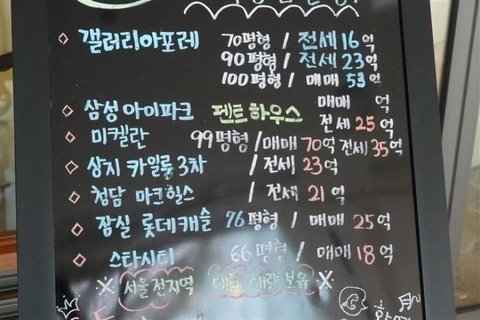 갤러리아포레 70평형 / 전세 16억
90평형 / 전세 23억
100평형 / 매매 53억
삼성 아이파크 펜트하우스 매매 억
전세 25억
미켈란 99평형 / 매매 70억 전세 35억
상지 카일룸 3차 / 전세 23억
청담 마크힐스 / 전세 21억
잠실 롯데캐슬 76평형 / 매매 25억
스타시티 66평형 / 매매 18억
※ 서울 전지역 대량 보유 ※